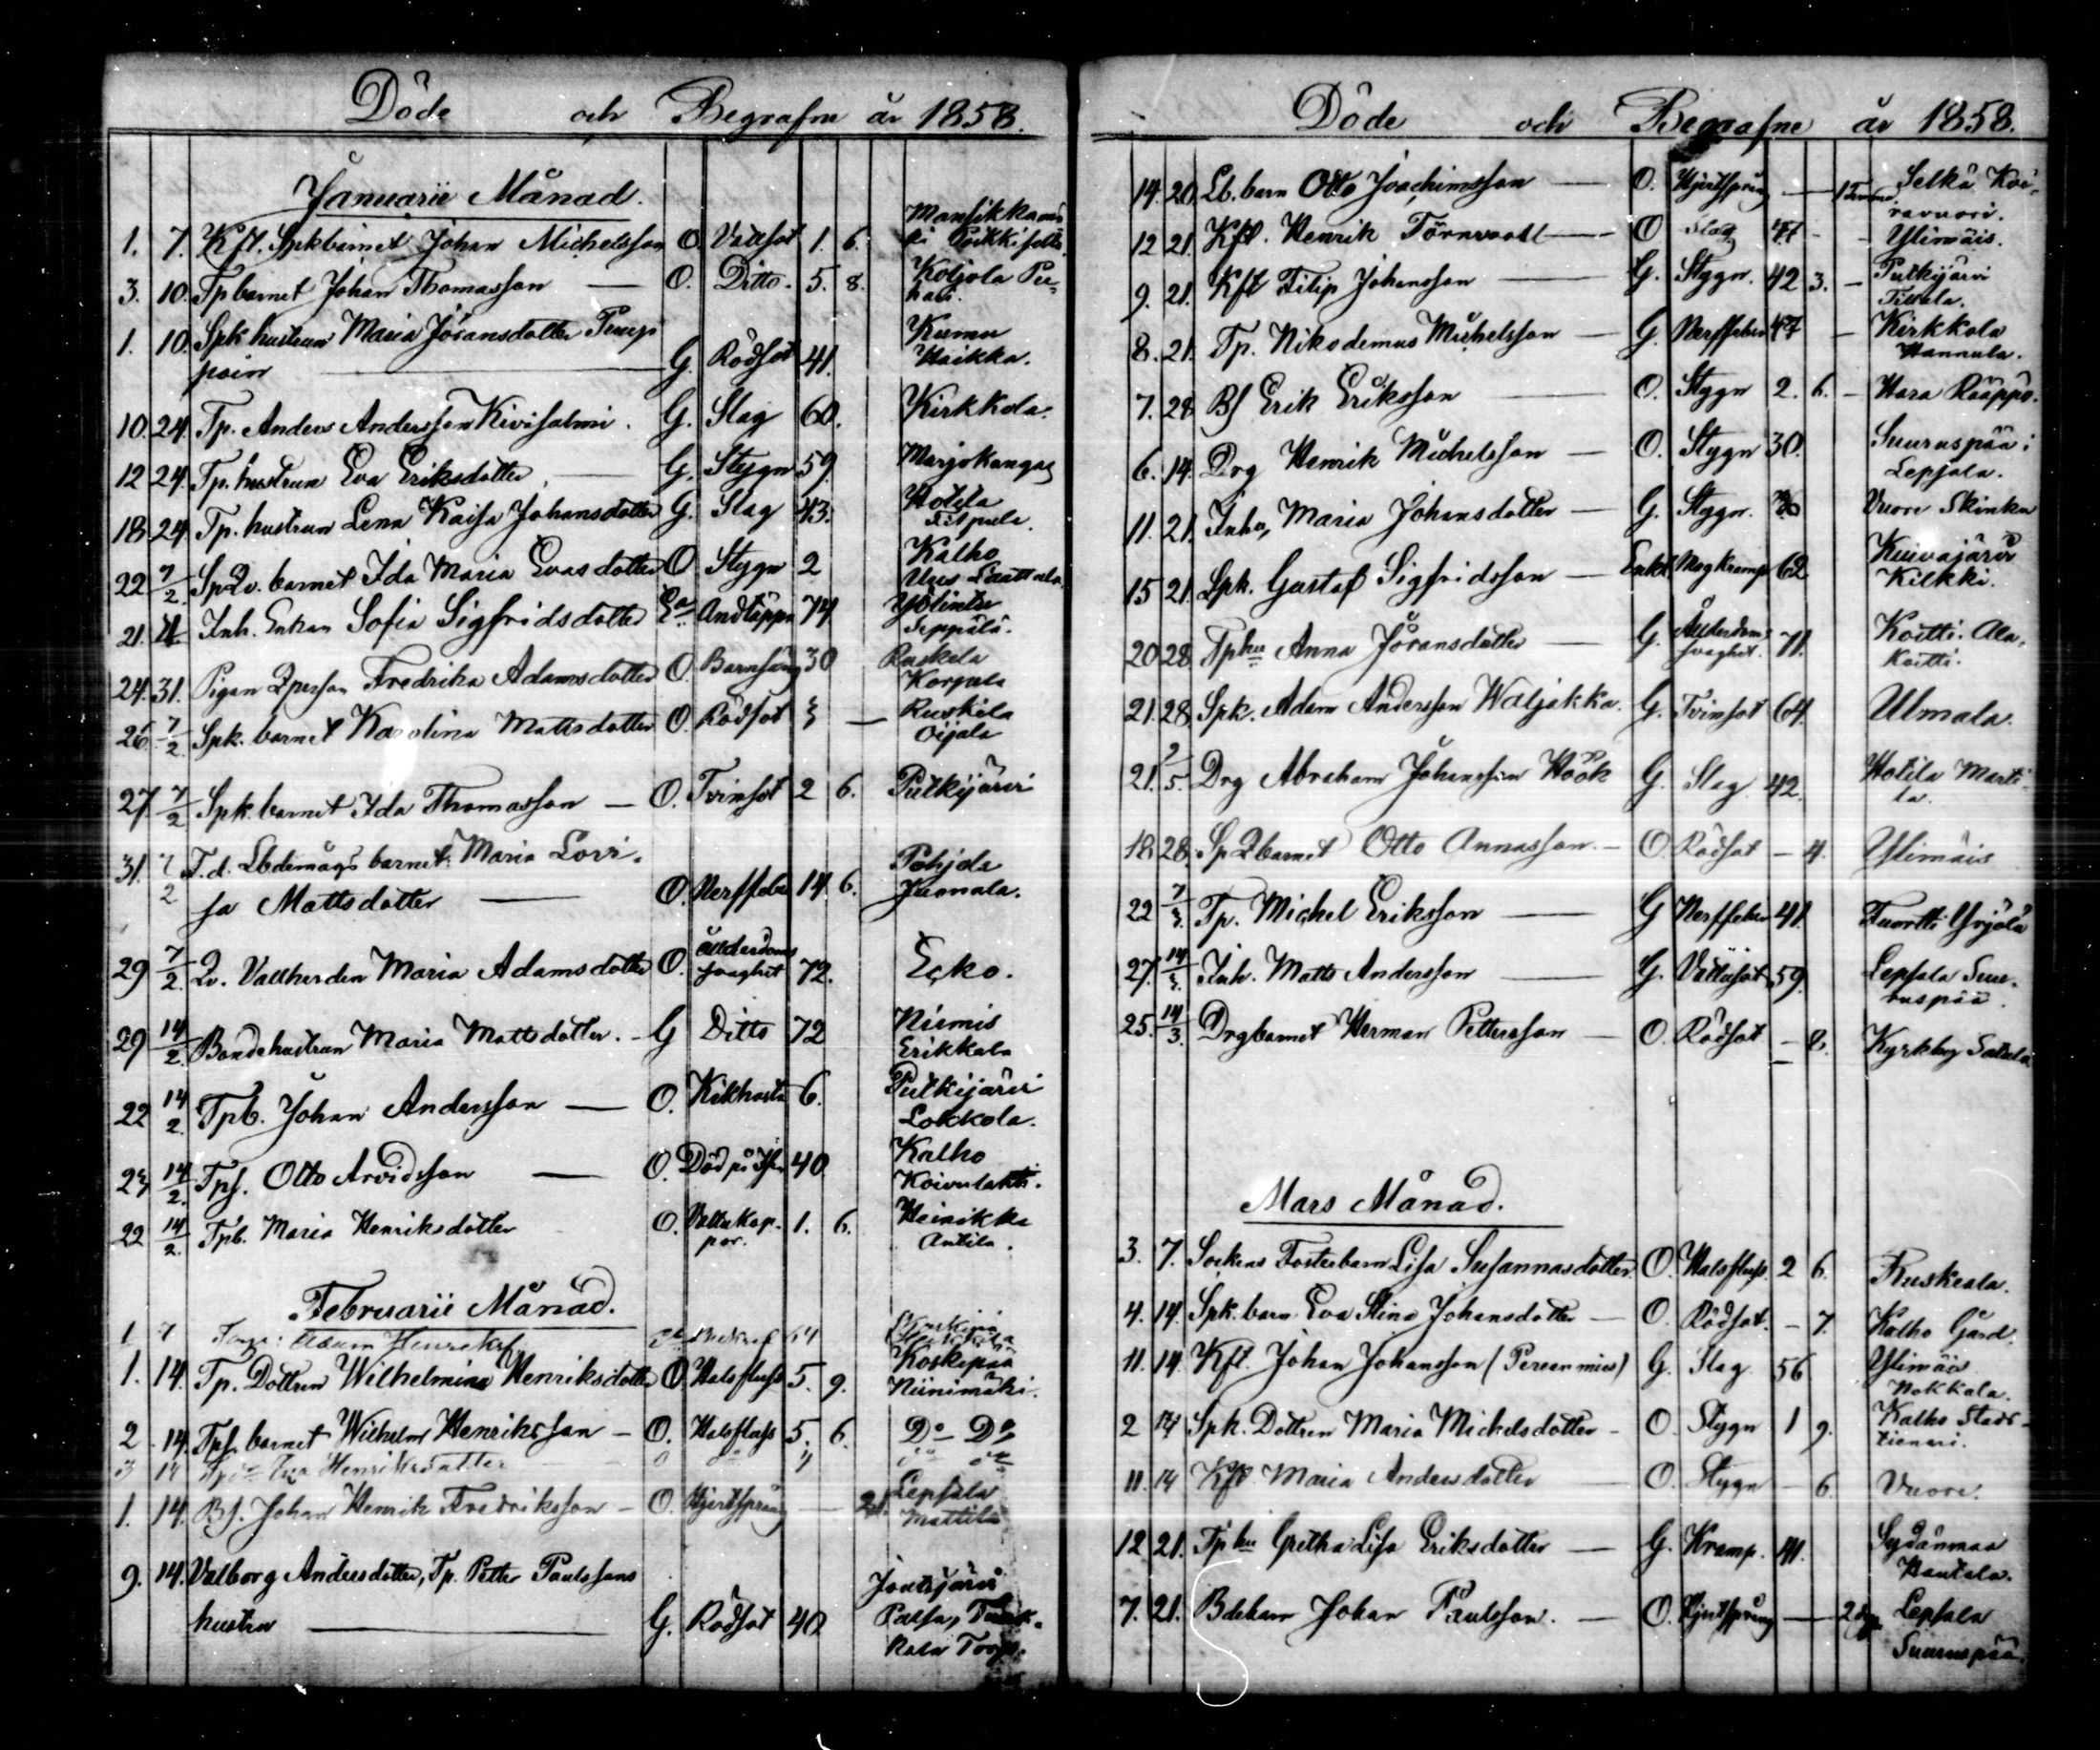 Döde och Begrafne år 1858.
Januarii Månad.
1. 7. Kft. Spkbarnet Johan Michelsson O. Vattsot 1. 6.
3. 10. Tpbarnet Johan Thomasson — O. Ditto. 5. 8. Koljola
1. 10. Spk hustrun Maria Jöransdotter
G. Rödsot 41. Kumu Haikka.
10. 24. Tp. Anders Andersson Kivisalmi. G. Slag 60. Kirkkola.
12 24. Tp. hustrun Eva Eriksdotter — G. Stygn 59. Marjokangas
18 24. Tp. hustrun Lena Kaisa Johansdotter G. Slag 43. Hotila
22 7/2. Sp Qv. barnet Ida Maria Evasdotter O Stygn 2 Kalho
21. Inh. Enkan Sofia Sigfridsdotter Ea Andtäppa 74 Seppälä.
24. 31. Pigan Qperson Fredrika Adamsdotter O. Barnsäng 30 Ruskela Korpela
26 7/2 Spk. barnet Karolina Mattsdotter O. Rödsot 3 — Ruskela Oijala
27 7/2 Spk. barnet Ida Thomasson — O. Tvinsot 2 6. Putkijärvi
31. 7/2 T. d. barnet Maria Lovi-
sa Mattsdotter — O. Nerffeber 14. 6. Pohjola
29 7/2. Qv. Vallherden Maria Adamsdotter O. Ålderdoms svaghet 72. Ecko.
29 14/2. Bondehustrun Maria Mattsdotter. - G Ditto 72 Niemis Erikkala
22 14/2. Tpb. Johan Andersson — O. Kikhosta 6. Putkijärvi Lokkola.
23 14/2. Tps. Otto Arvidsson — O. 40 Kalho Koivulahti.
22 14/2. Tpb. Maria Henriksdotter O. Vattukoppor. 1. 6. Heinikka Antila.
Februarii Månad.
1 7 Adam Henriksson 64
1. 14. Tp. Dottren Wilhelmina Henriksdotter O. Halsfluss 5. 9. Koskipää Niinimäki.
2. 14. Tps. barnet Wilhelm Henriksson — O. Halsfluss 5. 6. Do Do
3 14 Eva Henriksdotter
1. 14. Bs. Johan Henrik Fredriksson — O. Hjertsprång — Lepsala Mattila
9. 14. Valborg Andersdotter, Tp. Petter Paulssons
hustru — G. Rödsot 40 Joutsjärvi
Döde och Begrafne år 1858.
14. 20. Lb. barn Otto Joachimsson — O. Hjertsprång — Selkä Koi-
ravuori.
12 21. Kft. Henrik Törnroott — O Slag 47 - - Ylimäis.
9. 21. Kft Filip Johansson — G. Stygn. 42 3. — Putkijärvi
8. 21. Tp. Nikodemus Michelsson — G. Nerffeber 47 — Kirkkola Hannula.
7. 28 Bs Erik Eriksson — O. Stygn 2. 6. —
6. 14. Drg Henrik Michelsson — O. Stygn 30. Suuruspää i Lepsala.
11. 21. Inha, Maria Johansdotter — G. Stygn. Vuore Skinka
15 21. Spk. Gustaf Sigfridsson — Enkl. Magkramp 62 Kuivajärvi Kilkki.
20 28 Tphu Anna Jöransdotter — G. Ålderdoms svaghet. 71. Koitti Ala-
Koitti.
21. 28. Spk. Adam Andersson Waljakka. G. Tvinsot 64. Ulmala.
21. Drg Abraham Johansson Höök G. Slag 42. Hotila Marti-
la.
18. 28. Sp Qbarnet Otto Annasson — O. Rödsot — 4. Ylimäis
22 7/3. Tp. Michel Eriksson — G Nerffeber 41. Tuortti Yrjölä
27. 14/3. Inh. Matts Andersson — G. Vattusot 59. Lepsala Suu-
ruspää.
25. 14/3. Drgbarnet Herman Pettersson — O. Rödsot — 8. Kyrkby
Mars Månad.
3. 7. Sockens Fosterbarn Lisa Susannasdotter. O. Halsfluss. 2 6. Ruskeala.
4. 14. Spk. barn Eva Stina Johansdotter — O. Rödsot. — 7. Kalho Gård.
11. 14. Kft. Johan Johansson G. Slag 56 Ylimäis Nokkala.
2 14 Spk. Dottren Maria Michelsdotter — O. Stygn 1 9. Kalho
11. 14 Kft Maria Andersdotter O. Stygn — 6. Vuore.
12 21. Tp hu Gretha Lisa Eriksdotter — G. Kramp. 41. Sydänmaa Hautala.
7. 21. Bdebarn Johan Paulsson. — O. Hjertsprång — Lepsala
Suuruspää.